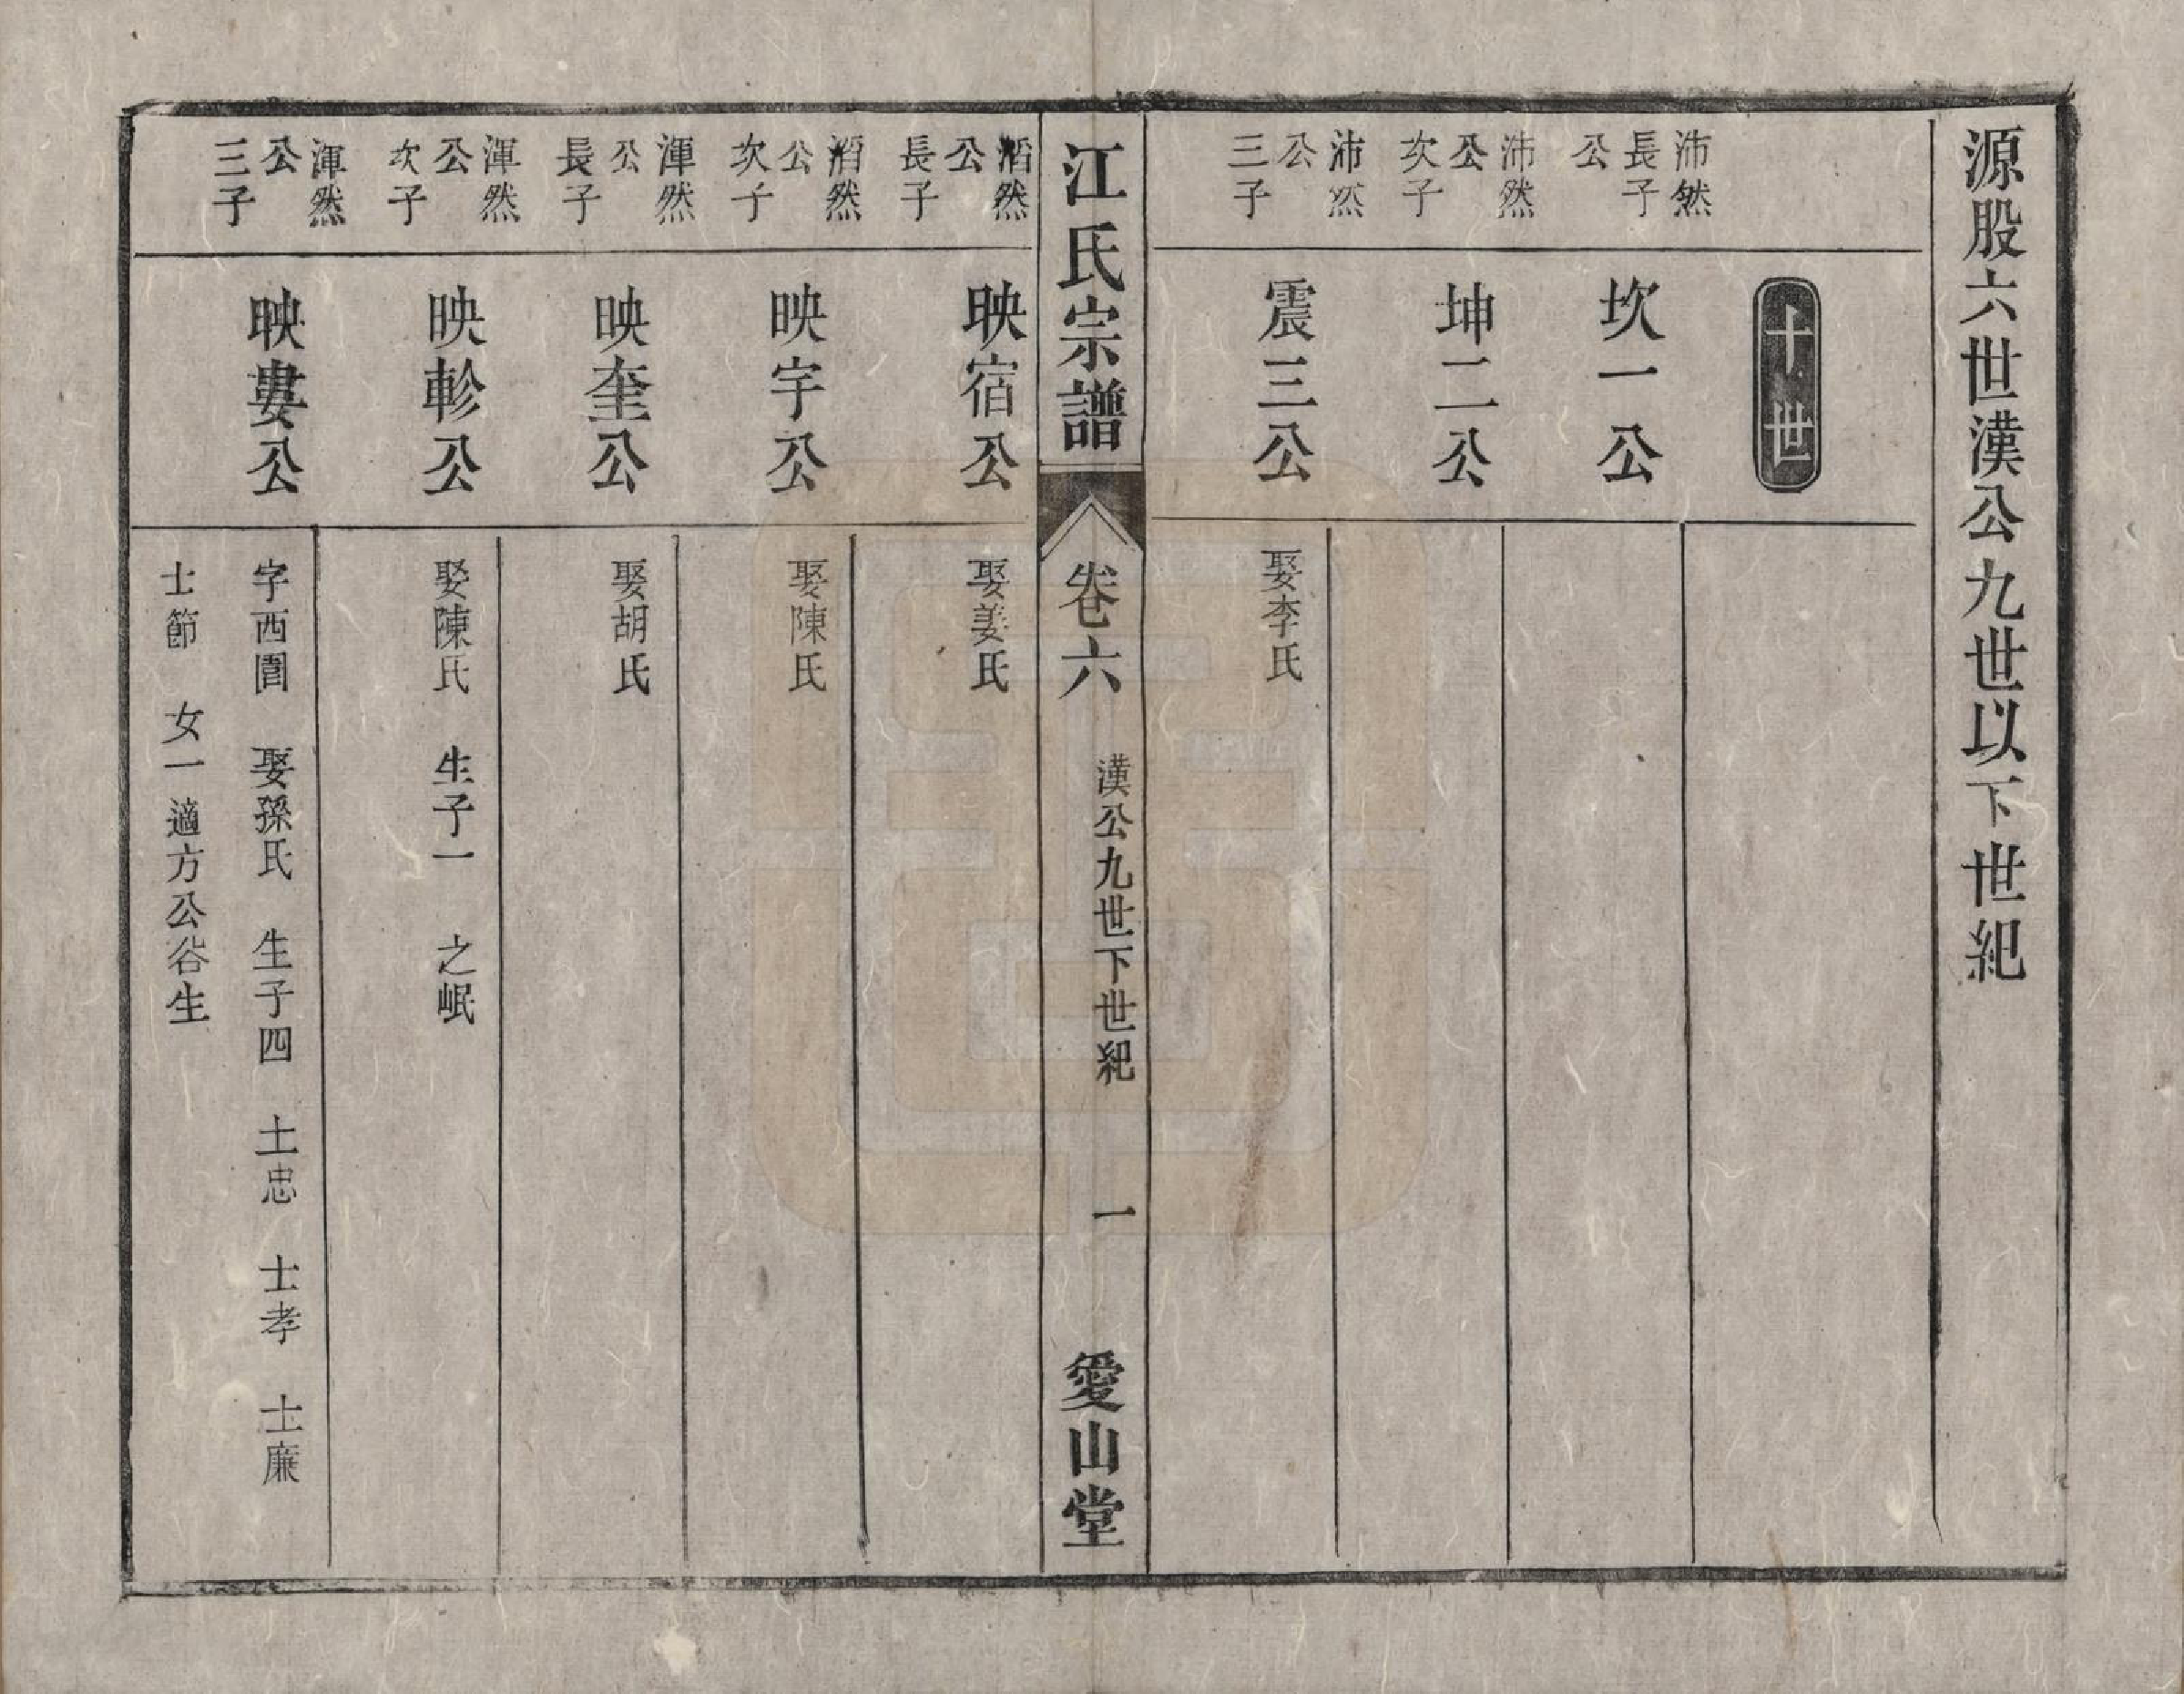 源股六世漢公九世以下世紀
十世
沛然
長子
公
坎一公
沛然
公
次子
坤二公
沛然
公
三子
震三公
娶李氏
江氏宗譜
卷六
漢公九世下世紀
一
愛山堂
滔然
公
長子
映宿公
娶姜氏
滔然
公
次子
映宇公
娶陳氏
渾然
公
長子
映奎公
娶胡氏
渾然
公
次子
映軫公
娶陳氏 生子一 之岷
渾然
公
三子
映婁公
字西圊 娶孫氏 生子四 士忠 士孝 士廉
士節 女一適方公谷生